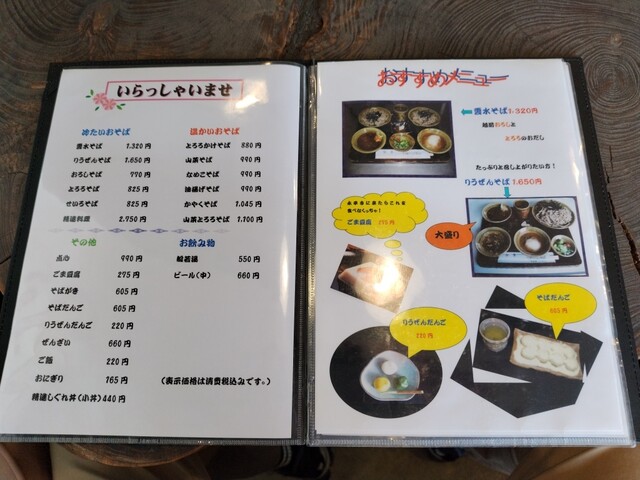 いらっしゃいませ
冷たいおそば
雲水そば 1.320円
りうぜんそば 1.650円
おろしそば 770円
とろろそば 825円
せいろそば 825円
精進料理 2.750円
温かいおそば
とろろかけそば 880円
山菜そば 990円
なめこそば 990円
油揚げそば 990円
かやくそば 1.045円
山菜とろろそば 1.100円
その他
点心 990円
ごま豆腐 275円
そばがき 605円
そばだんご 605円
りうぜんだんご 220円
ぜんざい 660円
ご飯 220円
おにぎり 165円
精進しぐれ丼(小丼)440円
お飲み物
般若湯 550円
ビール(中) 660円
(表示価格は消費税込みです。)
おすすめメニュー
雲水そば1.320円
越前おろしと
とろろのおだし
たっぷりと召し上がりたい方！
りうぜんそば 1.650円
大盛り
永平寺に来たらこれを
食べなくっちゃ！
ごま豆腐 275円
りうぜんだんご
220円
そばだんご